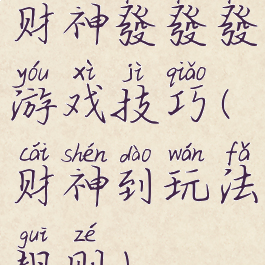 财神發發發
yóu xì jì qiǎo
游戏技巧(
cái shén dào wán fǎ
财神到玩法
guī zé
规则)